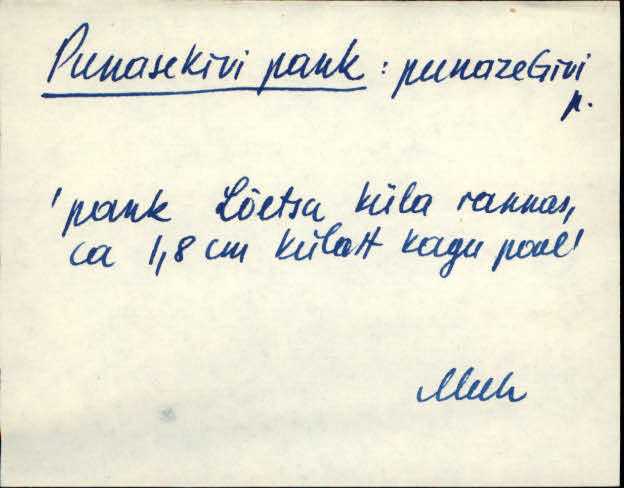 Punasekivi pank : punazeGivi
p.
'pank Lõetsa küla rannas,
ca 1,8 cm külast kagu pool'
Muh